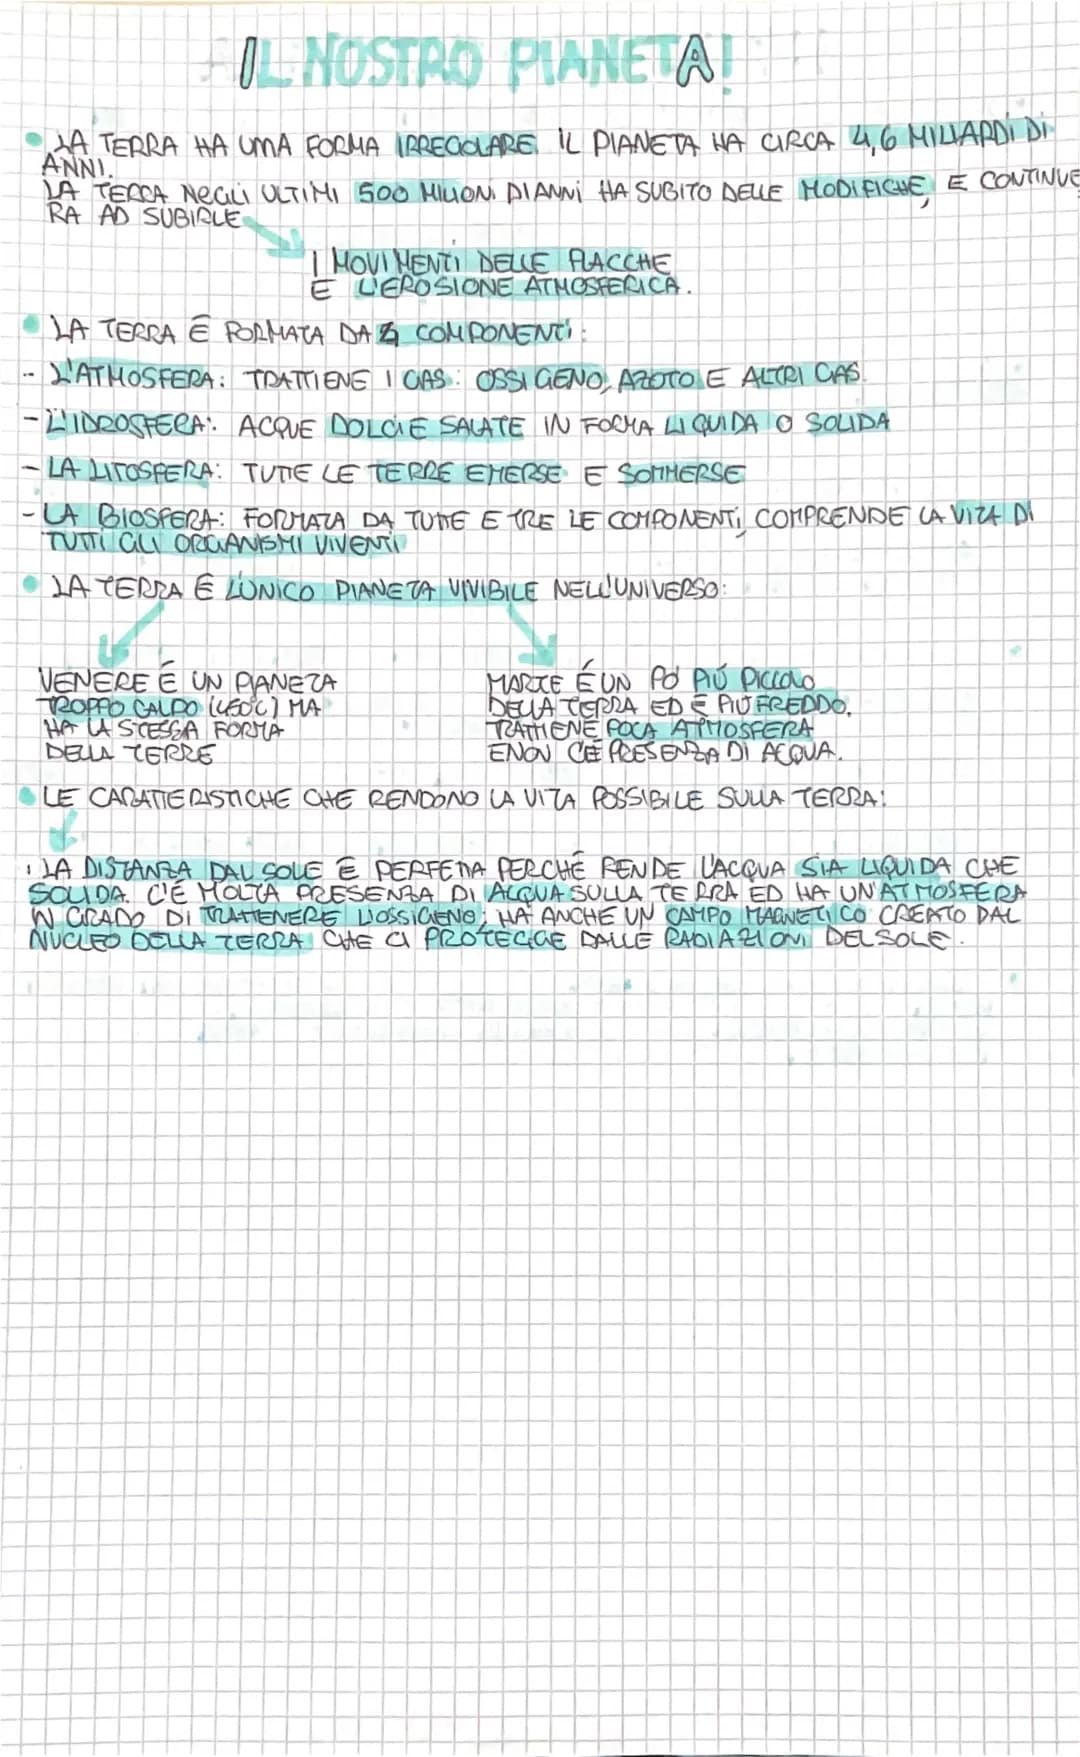 IL NOSTRO PIANETA!
LA TERRA HA UNA FORMA IRREGOLARE. IL PIANETA HA CIRCA 4,6 MILIARDI DI
ANNI.
LA TERRA NEGLI ULTIMI 500 MILIONI DI ANNI HA SUBITO DELLE MODIFICHE, E CONTINUE
RA AD SUBIRLE
I MOVIMENTI DELLE PLACCHE
E L'EROSIONE ATMOSFERICA.
LA TERRA É FORMATA DA 4 COMPONENTI:
- L'ATMOSFERA: TRATTIENE I GAS: OSSIGENO, AZOTO E ALTRI GAS.
- L'IDROSFERA: ACQUE DOLCI E SALATE IN FORMA LIQUIDA O SOLIDA
- LA LITOSFERA: TUTTE LE TERRE EMERSE E SOMMERSE
- LA BIOSFERA: FORMATA DA TUTTE E TRE LE COMPONENTI, COMPRENDE LA VITA DI
TUTTI GLI ORGANISMI VIVENTI
LA TERRA É L'UNICO PIANETA VIVIBILE NELL'UNIVERSO:
VENERE É UN PIANETA
TROPPO CALDO (460°C) MA
HA LA STESSA FORMA
DELLA TERRE
MARTE É UN PO' PIÚ PICCOLO
DELLA TERRA ED É PIÚ FREDDO,
TRATTIENE POCA ATMOSFERA
E NON C'É PRESENZA DI ACQUA.
LE CARATTERISTICHE CHE RENDONO LA VITA POSSIBILE SULLA TERRA:
LA DISTANZA DAL SOLE É PERFETTA PERCHÉ RENDE L'ACQUA SIA LIQUIDA CHE
SOLIDA. C'É MOLTA PRESENZA DI ACQUA SULLA TERRA ED HA UN'ATMOSFERA
IN GRADO DI TRATTENERE L'OSSIGENO, HA ANCHE UN CAMPO MAGNETICO CREATO DAL
NUCLEO DELLA TERRA CHE CI PROTEGGE DALLE RADIAZIONI DEL SOLE.